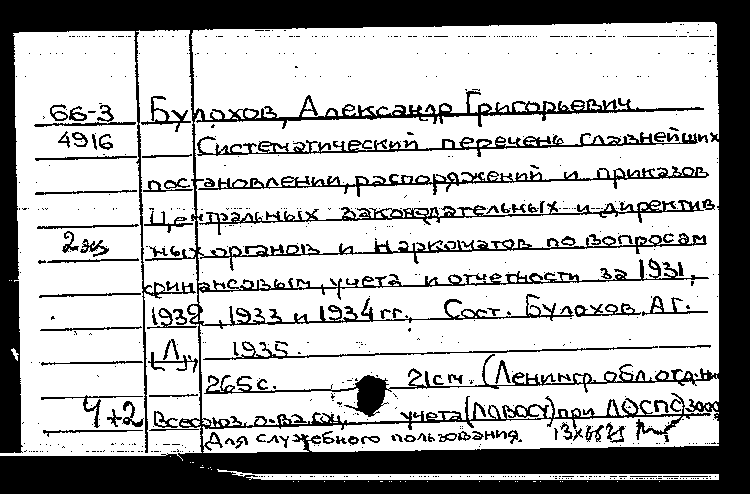 66-3 Булохов, Александр Григорьевич.
4916 Систематический перечень главнейших
постановлении, распоряжений и приказов
Центральных законодательных и директив-
2 экз ных органов и Наркоматов по вопросам
финансовым, учета и отчетности за 1931,
1932, 1933 и 1934 гг. Сост. Булохов, А.Г.
[Л],, 1935.
265 с. 21 см. (Ленингр. обл. отд-ние
4+2 Всесоюз. о-ва соц. учета (ЛОВОСУ) при ЛОСПС) 3000
Для служебного пользования.